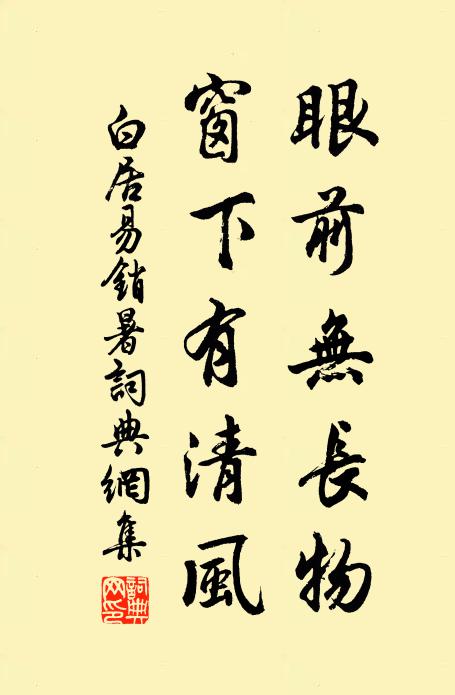 眼前無長物
窗下有清風
白居易銷暑詞典網集
詞典
网印